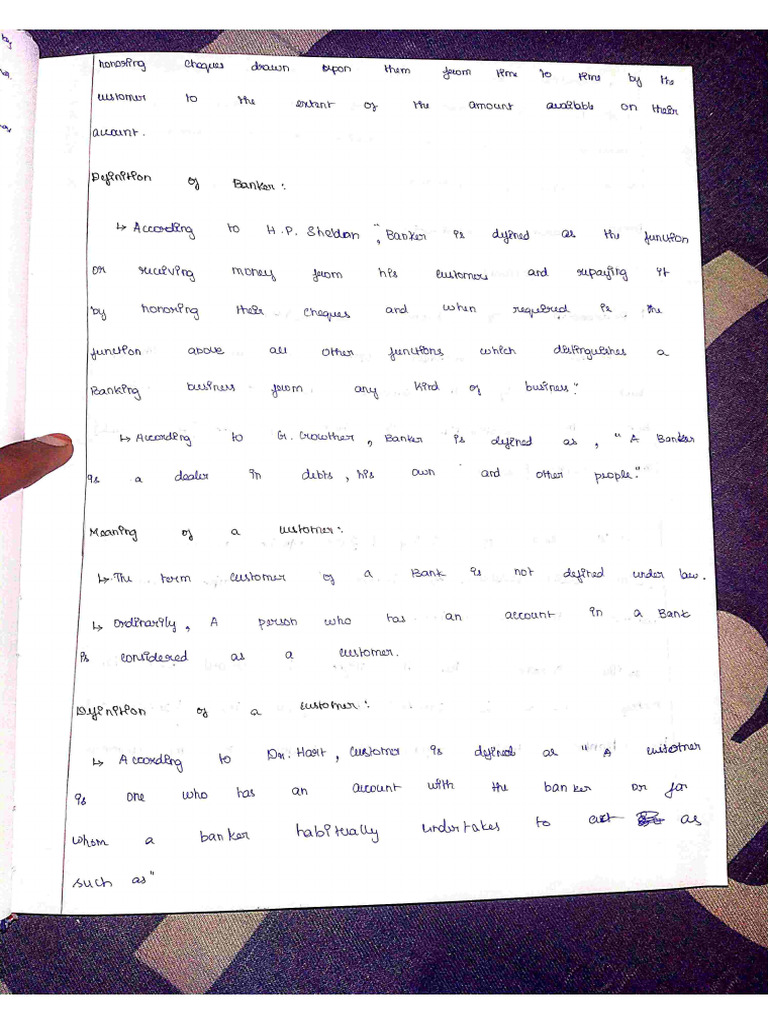 honoring cheques drawn upon them from time to time by the
customer to the extent of the amount available on their
account.
Definition of Banker:
↳ According to H.P. Sheldon, "Banker is defined as the function
or receiving money from his customers and repaying it
by honoring their cheques and when required is the
function above all other functions which distinguishes a
Banking business from any kind of business."
↳ According to G. Crowther, Banker is defined as, "A Banker
is a dealer in debts, his own and other people."
Meaning of a customer:
↳ The term customer of a Bank is not defined under law.
↳ Ordinarily, A person who has an account in a Bank
is considered as a customer.
Definition of a customer:
↳ According to Dr. Hart, customer is defined as "A customer
is one who has an account with the banker or for
whom a banker habitually undertakes to act as
such as"